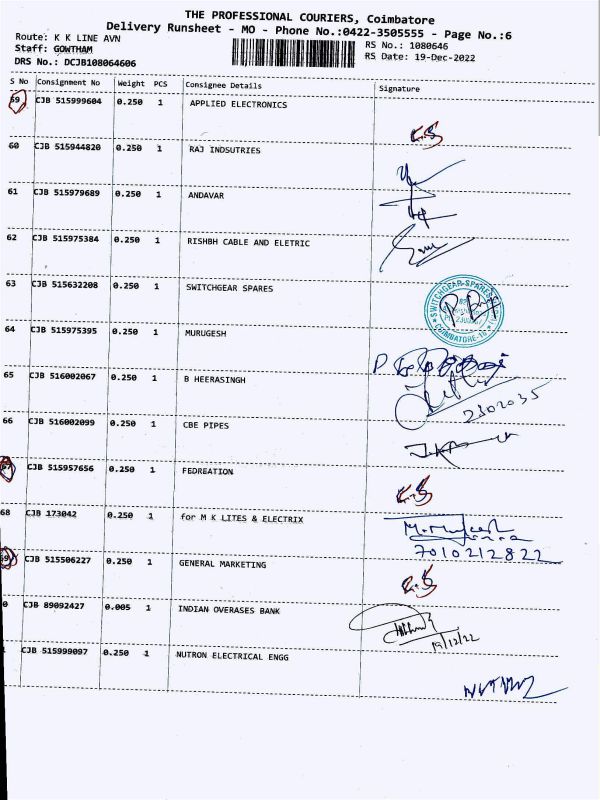 THE PROFESSIONAL COURIERS, Coimbatore
Delivery Runsheet - MO - Phone No.:0422-3505555 - Page No.:6
Route: K K LINE AVN
RS No.: 1080646
Staff: GOWTHAM
RS Date: 19-Dec-2022
DRS No.: DCJB108064606
S No Consignment No Weight PCS Consignee Details Signature
59 CJB 515999604 0.250 1 APPLIED ELECTRONICS
60 CJB 515944820 0.250 1 RAJ INDSUTRIES
61 CJB 515979689 0.250 1 ANDAVAR
62 CJB 515975384 0.250 1 RISHBH CABLE AND ELETRIC
63 CJB 515632208 0.250 1 SWITCHGEAR SPARES
SWITCHGEAR SPARES
COIMBATORE-18
64 CJB 515975395 0.250 1 MURUGESH
65 CJB 516002067 0.250 1 B HEERASINGH
2302035
66 CJB 516002099 0.250 1 CBE PIPES
67 CJB 515957656 0.250 1 FEDREATION
68 CJB 173042 0.250 1 for M K LITES & ELECTRIX
7010212822
69 CJB 515506227 0.250 1 GENERAL MARKETING
0 CJB 89092427 0.005 1 INDIAN OVERASES BANK
19/12/22
CJB 515999097 0.250 1 NUTRON ELECTRICAL ENGG